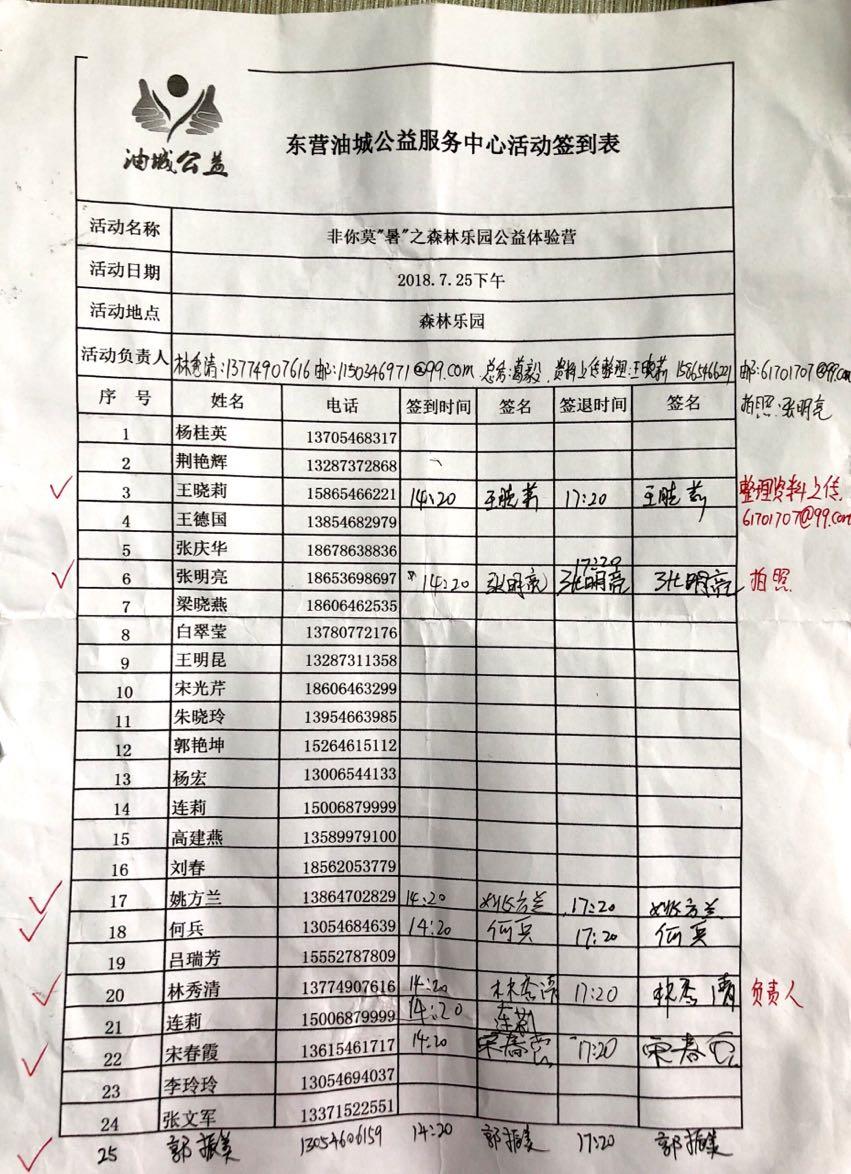 油城公益
东营油城公益服务中心活动签到表
活动名称 非你莫"暑"之森林乐园公益体验营
活动日期 2018.7.25下午
活动地点 森林乐园
活动负责人 林秀清:13774907616 邮:1150346971@qq.com 总务:葛毅 资料上传整理:王晓莉 15865466221 邮:61701707@qq.com
拍照:张明亮
序 号 姓名 电话 签到时间 签名 签退时间 签名
1 杨桂英 13705468317
2 荆艳辉 13287372868
3 王晓莉 15865466221 14:20 王晓莉 17:20 王晓莉 整理资料上传
61701707@qq.com
4 王德国 13854682979
5 张庆华 18678638836
6 张明亮 18653698697 14:20 张明亮 17:20 张明亮 张明亮 拍照
7 梁晓燕 18606462535
8 白翠莹 13780772176
9 王明昆 13287311358
10 宋光芹 18606463299
11 朱晓玲 13954663985
12 郭艳坤 15264615112
13 杨宏 13006544133
14 连莉 15006879999
15 高建燕 13589979100
16 刘春 18562053779
17 姚方兰 13864702829 14:20 姚方兰 17:20 姚方兰
18 何兵 13054684639 14:20 何兵 17:20 何兵
19 吕瑞芳 15552787809
20 林秀清 13774907616 14:20 林秀清 17:20 林秀清 负责人
21 连莉 15006879999 14:20 连莉
22 宋春霞 13615461717 14:20 宋春霞 17:20 宋春霞
23 李玲玲 13054694037
24 张文军 13371522551
25 郭振美 13054606159 14:20 郭振美 17:20 郭振美